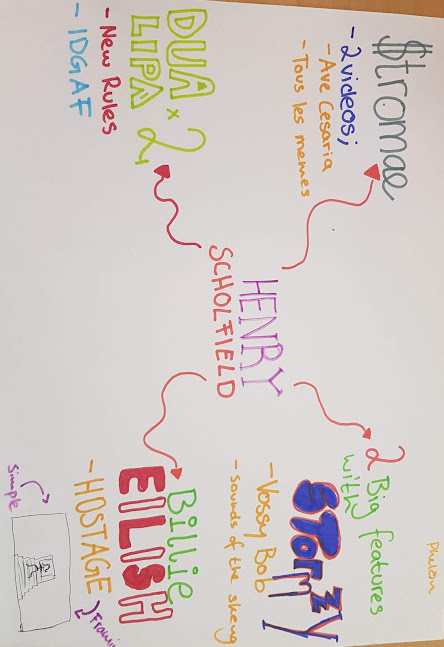 HENRY
SCHOLFIELD
$tromae
- 2 videos;
- Ave Cesaria
- Tous les memes
DUA
LIPA x 2
- New Rules
- IDGAF
2 Big features
with
STORMZY
- Vossy Bob
- Sounds of the skeng
Billie
EILISH
- HOSTAGE
Simple